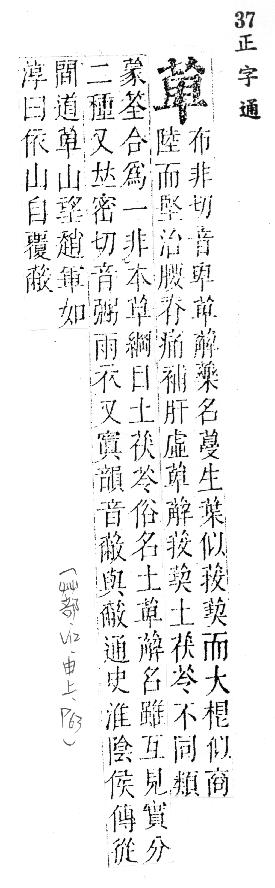 37 正字通
萆
布非切音卑萆薢藥名蔓生葉似菝葜而大根似商
陸而堅治腰脊痛補肝虛萆薢菝葜土茯苓不同類
蒙筌合為一非本草綱目土茯苓俗名土萆薢名雖互見實分
二種又密切音弼雨衣又寘韻音蔽與蔽通史淮陰侯傳從
間道萆山望趙軍如
淳曰依山自覆蔽
(艸部 申上 P63)